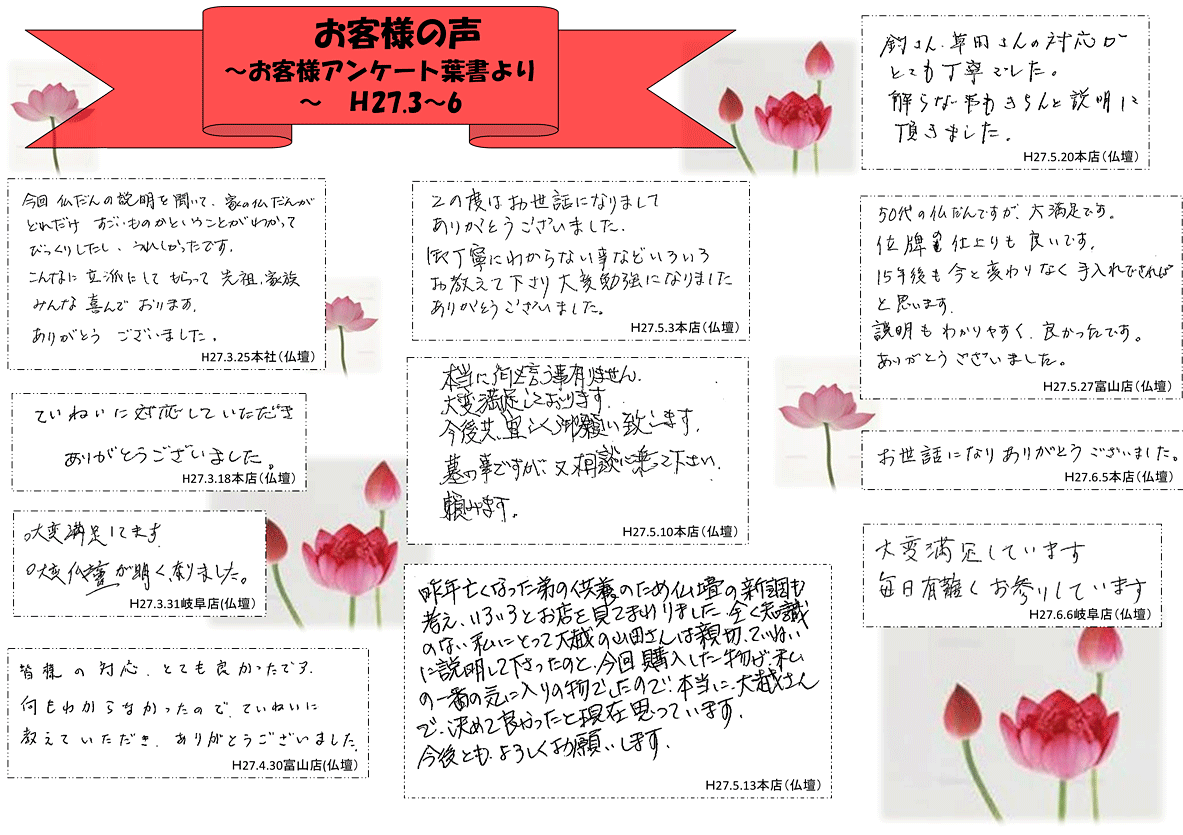 お客様の声
～お客様アンケート葉書より
～　H27.3～6
今回 仏だんの説明を聞いて、家の仏だんが
どれだけ すごいものかということがわかって
びっくりしたし、うれしかったです。
こんなに立派にして もらって 先祖、家族
みんな 喜んで おります。
ありがとう ございました。
H27.3.25本社（仏壇）
ていねいに対応していただき
ありがとうございました。
H27.3.18本店（仏壇）
○大変満足してます
○大変仏壇が明くなりました。
H27.3.31岐阜店(仏壇）
皆様の対応、とても良かったです。
何もわからなかったので、ていねいに
教えていただき、ありがとうございました。
H27.4.30富山店(仏壇）
この度はお世話になりまして
ありがとうございました。
丁寧にわからない事などいろいろ
お教えて下さり大変勉強になりました
ありがとうございました。
H27.5.3本店（仏壇）
本当に何も言う事有りません。
大変満足しております。
今後共、宜しく御願い致します。
墓の事ですが、又相談に乗って下さい。
頼みます。
H27.5.10本店（仏壇）
昨年亡くなった弟の供養のため仏壇の新調も
考え、いろいろとお店を見てまわりました。全く知識
のない私にとって大越の山田さんは親切、ていねい
に説明して下さったのと、今回購入した物が、私
の一番の気に入りの物でしたので、本当に、大越さん
で、決めて良かったと現在思っています。
今後とも、よろしくお願いします。
H27.5.13本店（仏壇）
さん、草田さんの対応が
とても丁寧でした。
解らない事もきちんと説明に
頂きました。
H27.5.20本店（仏壇）
50代の仏だんですが、大満足です。
位牌も仕上りも良いです。
15年後も今と変わりなく手入れできれば
と思います。
説明もわかりやすく、良かったです。
ありがとうございました。
H27.5.27富山店（仏壇）
お世話になりありがとうございました。
H27.6.5本店（仏壇）
大変満足しています
毎日有難くお参りしています
H27.6.6岐阜店（仏壇）